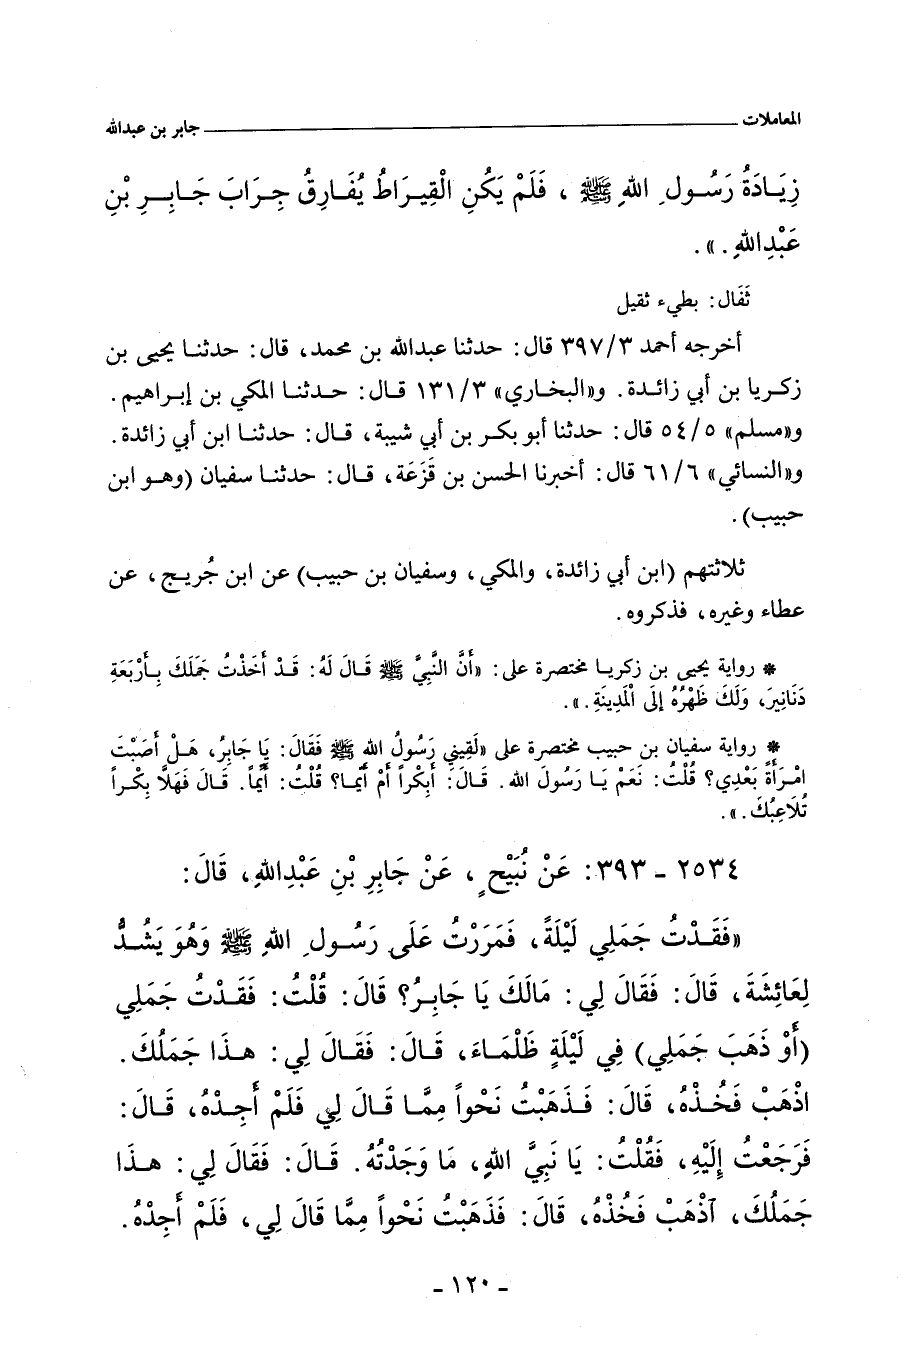 المعاملات ــــــــــــــــــــــــــــــــــــ جابر بن عبدالله
زِيَـادَةُ رَسُـولِ اللهِ ﷺ ، فَلَمْ يَكُنِ الْقِيـرَاطُ يُفَـارِقُ جِـرَابَ جَـابِــرِ بْنِ
عَبْدِاللهِ . » .
ثَفَال : بطيء ثقيل
أخرجه أحمد ٣/٣٩٧ قال : حدثنا عبدالله بن محمد، قال : حدثنـا يحيى بن
زكـريا بن أبي زائـدة. و«البخـاري» ٣/١٣١ قـال : حـدثنـا المكي بن إبـراهيم.
و«مسلم» ٥/٥٤ قال : حدثنا أبو بكـر بن أبي شيبة، قـال : حدثنـا ابن أبي زائدة.
و«النسائي» ٦/٦١ قال : أخبرنا الحسن بن قَزَعَة، قـال : حدثنـا سفيان (وهـو ابن
حبيب).
ثلاثتهم (ابن أبي زائدة، والمكي، وسفيان بن حبيب) عن ابن جُريـج، عن
عطاء وغيره، فذكروه.
* رواية يحيى بن زكريـا مختصرة على : «أَنَّ النَّبِيَّ ﷺ قَـالَ لَهُ: قَـدْ أَخَذْتُ جَمَلَكَ بِـأَرْبَعَةِ
دَنَانِيرَ، وَلَكَ ظَهْرُهُ إِلَى الْمَدِينَةِ.».
* رواية سفيان بن حبيب مختصرة على «لَقِيَنِي رَسُولُ اللهِ ﷺ فَقَالَ: يَا جَابِرُ، هَـلْ أَصَبْتَ
امْـرَأَةً بَعْدِي؟ قُلْتُ: نَعَمْ يَـا رَسُولَ اللهِ. قَـالَ: أَبِكْراً أَمْ أَيِّمـا؟ قُلْتُ: أَيِّماً. قَـالَ فَهَلَّا بِكْـراً
تُلَاعِبُكَ.».
٢٥٣٤ - ٣٩٣: عَنْ نُبَيْحٍ، عَنْ جَابِرِ بْنِ عَبْدِاللهِ، قَالَ:
«فَقَـدْتُ جَمَلِي لَيْلَةً، فَمَرَرْتُ عَلَى رَسُـولِ اللهِ ﷺ وَهُوَ يَشُـدُّ
لِعَائِشَةَ، قَالَ: فَقَالَ لِي: مَالَكَ يَا جَابِـرُ؟ قَالَ: قُلْتُ: فَقَـدْتُ جَمَلِي
(أَوْ ذَهَبَ جَمَلِي) فِي لَيْلَةٍ ظَلْمَـاءَ، قَـالَ: فَقَـالَ لِي: هـذَا جَمَلُكَ.
اذْهَبْ فَخُـذْهُ، قَالَ: فَـذَهَبْتُ نَحْواً مِمَّـا قَالَ لِي فَلَمْ أَجِـدْهُ، قَـالَ:
فَرَجَعْتُ إِلَيْهِ، فَقُلْتُ: يَا نَبِيَّ اللهِ، مَا وَجَدْتُهُ. قَـالَ: فَقَالَ لِي: هـذَا
جَمَلُكَ، آذْهَبْ فَخُذْهُ، قَالَ: فَذَهَبْتُ نَحْواً مِمَّا قَالَ لِي، فَلَمْ أَجِدْهُ.
- ١٢٠ -